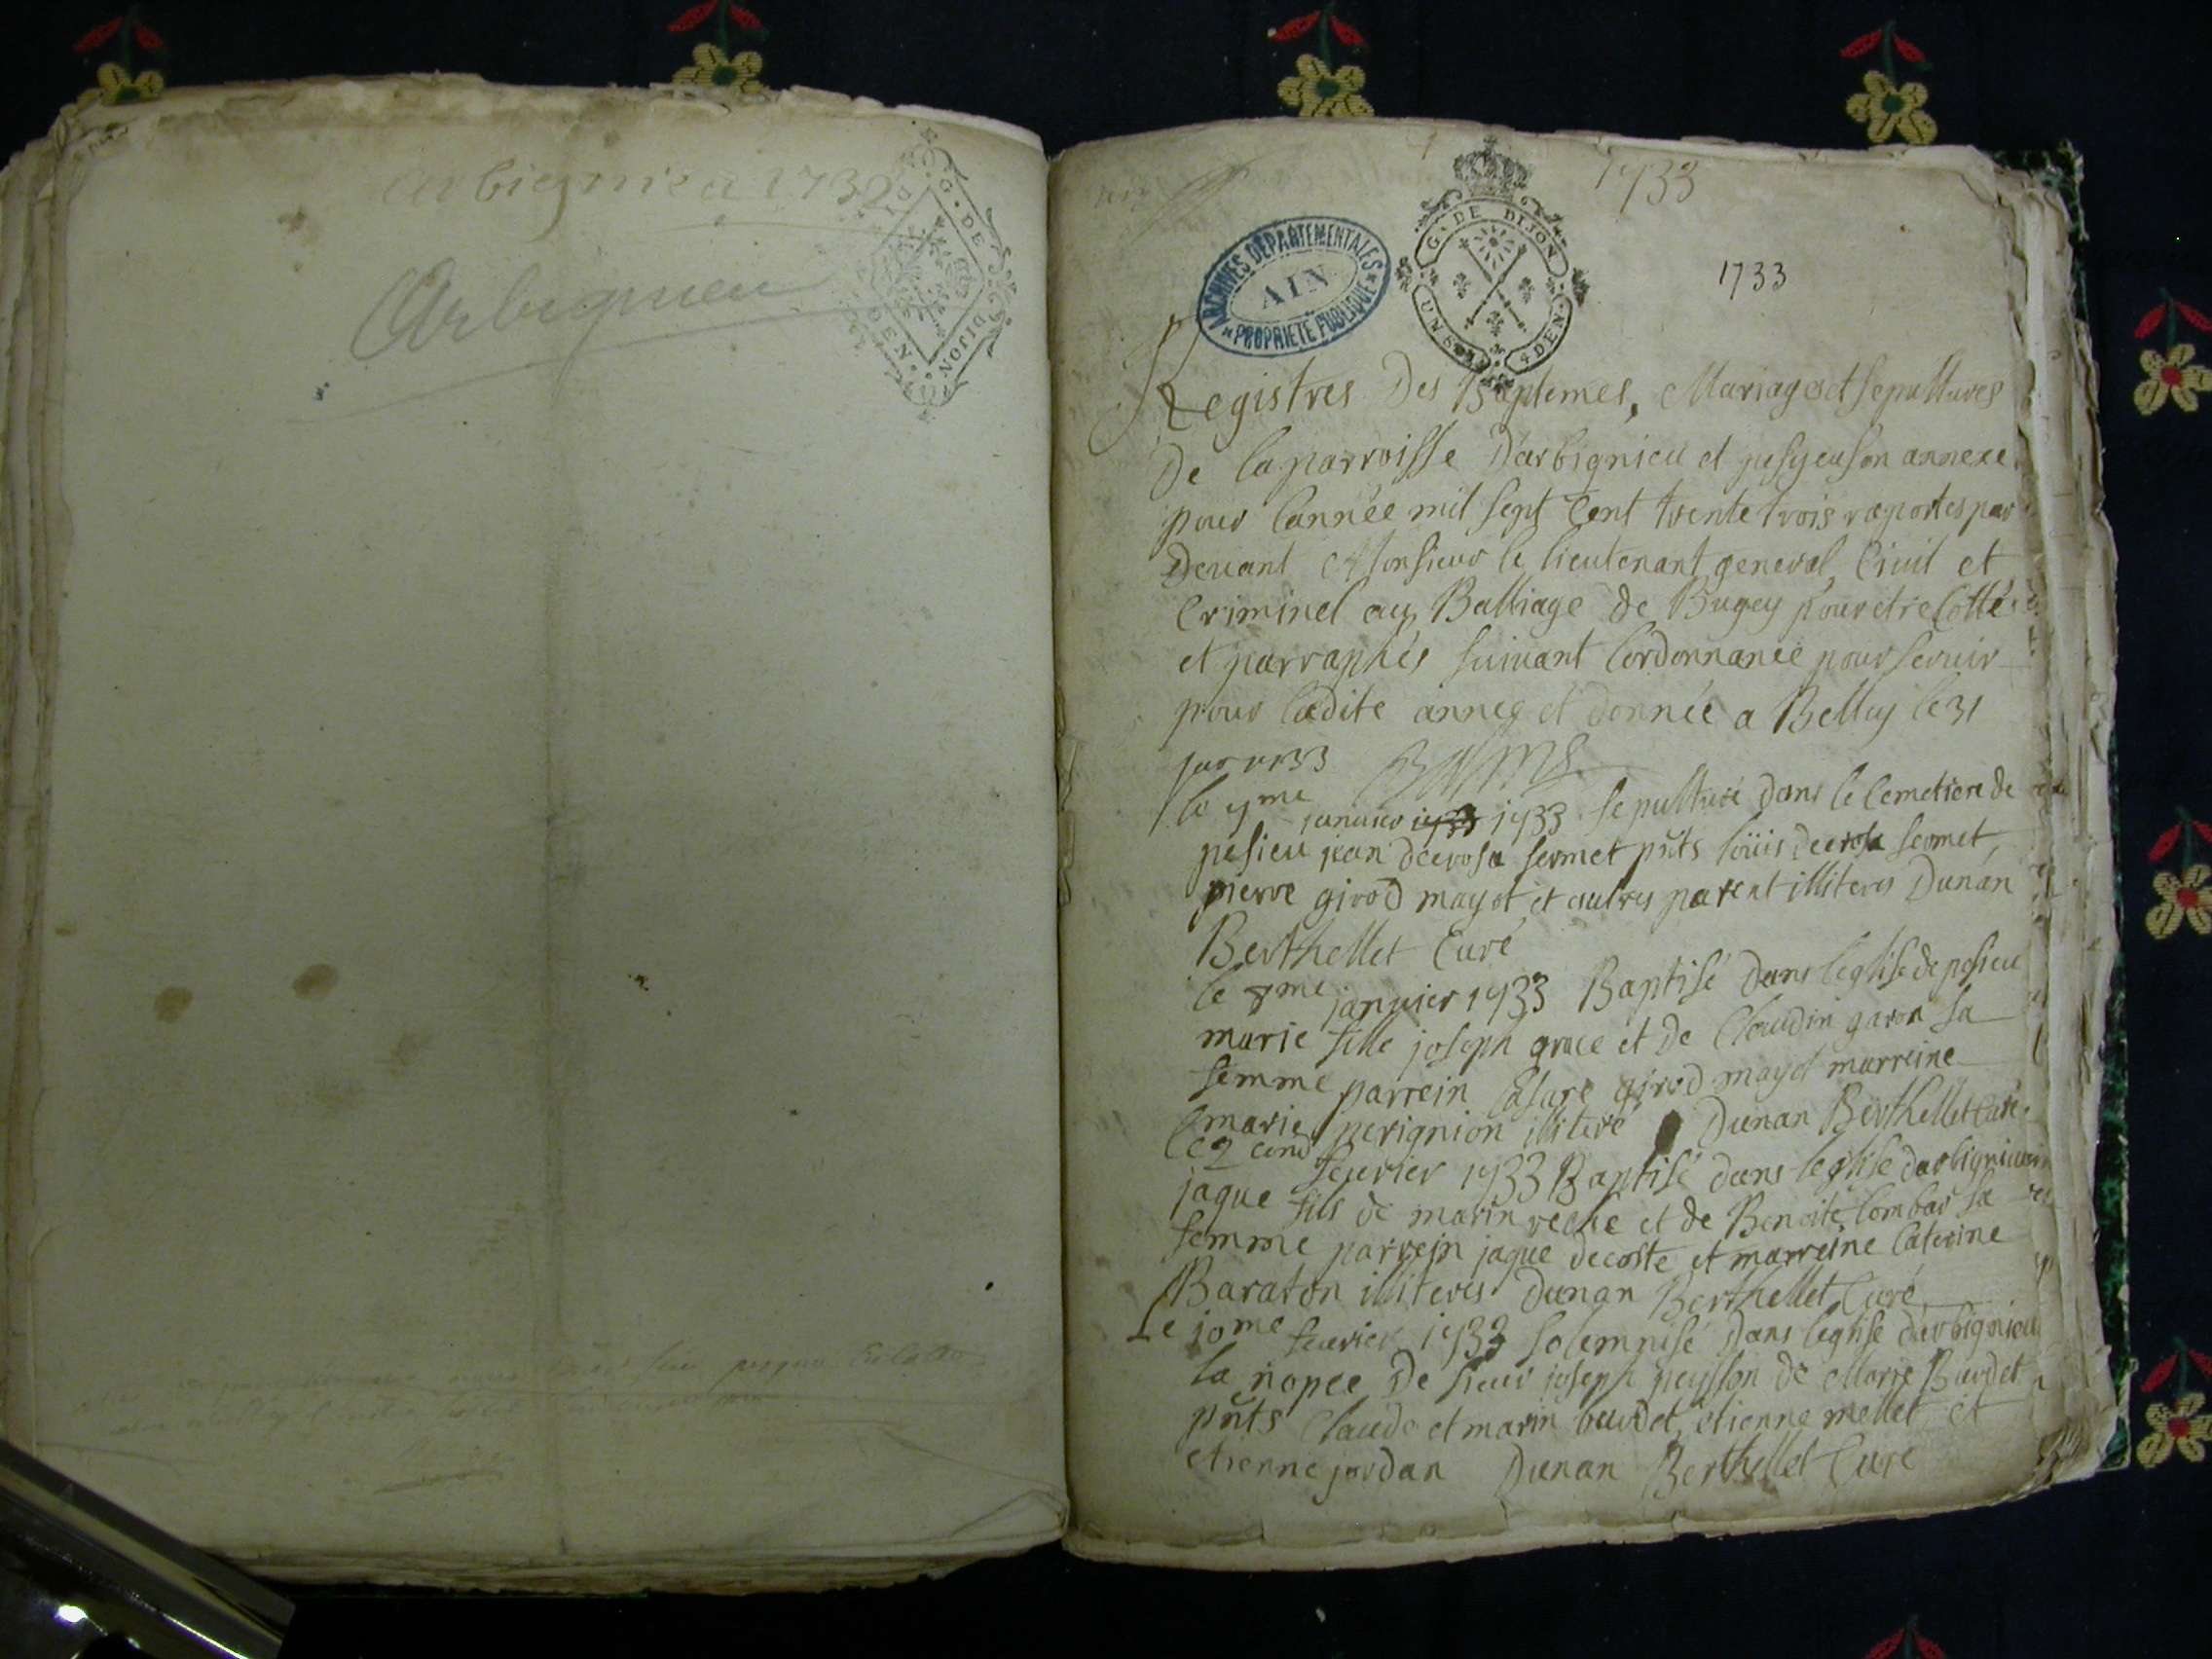 arbignieu 1732
G · DE DIJON
DEN
Arbignieu
1733
ARCHIVES DEPARTEMENTALES
AIN
PROPRIETE PUBLIQUE
G · DE DIJON
UN S 4 DEN
1733
Registres Des Baptemes, Mariages et sepultures
De la parroisse Darbignieu et pesyeu son annexe
pour lannée mil sept Cent trente trois raportes par
Devant Monsieur le lieutenant general Civil et
Criminel au Balliage De Bugey pour etre Cotté
et parraphés suivant lordonnance pour servir
pour ladite annee et donnée a Belley le 31
1733
le 7me januier 1733 sepulturé Dans le Cemetiere de
pesieu jean decrosa sermet pñts loüis decrosa sermet
pierre girod mayot et autres parent illiteres Dunan
Berthellet Curé
le 8me januier 1733 Baptisé Dans leglise de pesieu
marie fille joseph grace et De Claudin garon sa
femme parrein Cesare girod mayot marreine
marie perignion illiteré Dunan Berthellet Curé
le 2 cond feurier 1733 Baptisé dans leglise darbignieu
jaque fils de marin reche et de Benoite lombar sa
femme parrein jaque decoste et marreine Caterine
Baraton illiteres Dunan Berthellet Curé
Le 10me feurier 1733 solemnisé Dans leglise darbignieu
la nopce De sieur joseph peysson de Marie Burdet
pñts Claude et marin burdet, etienne mellet et
etienne jordan Dunan Berthellet Curé